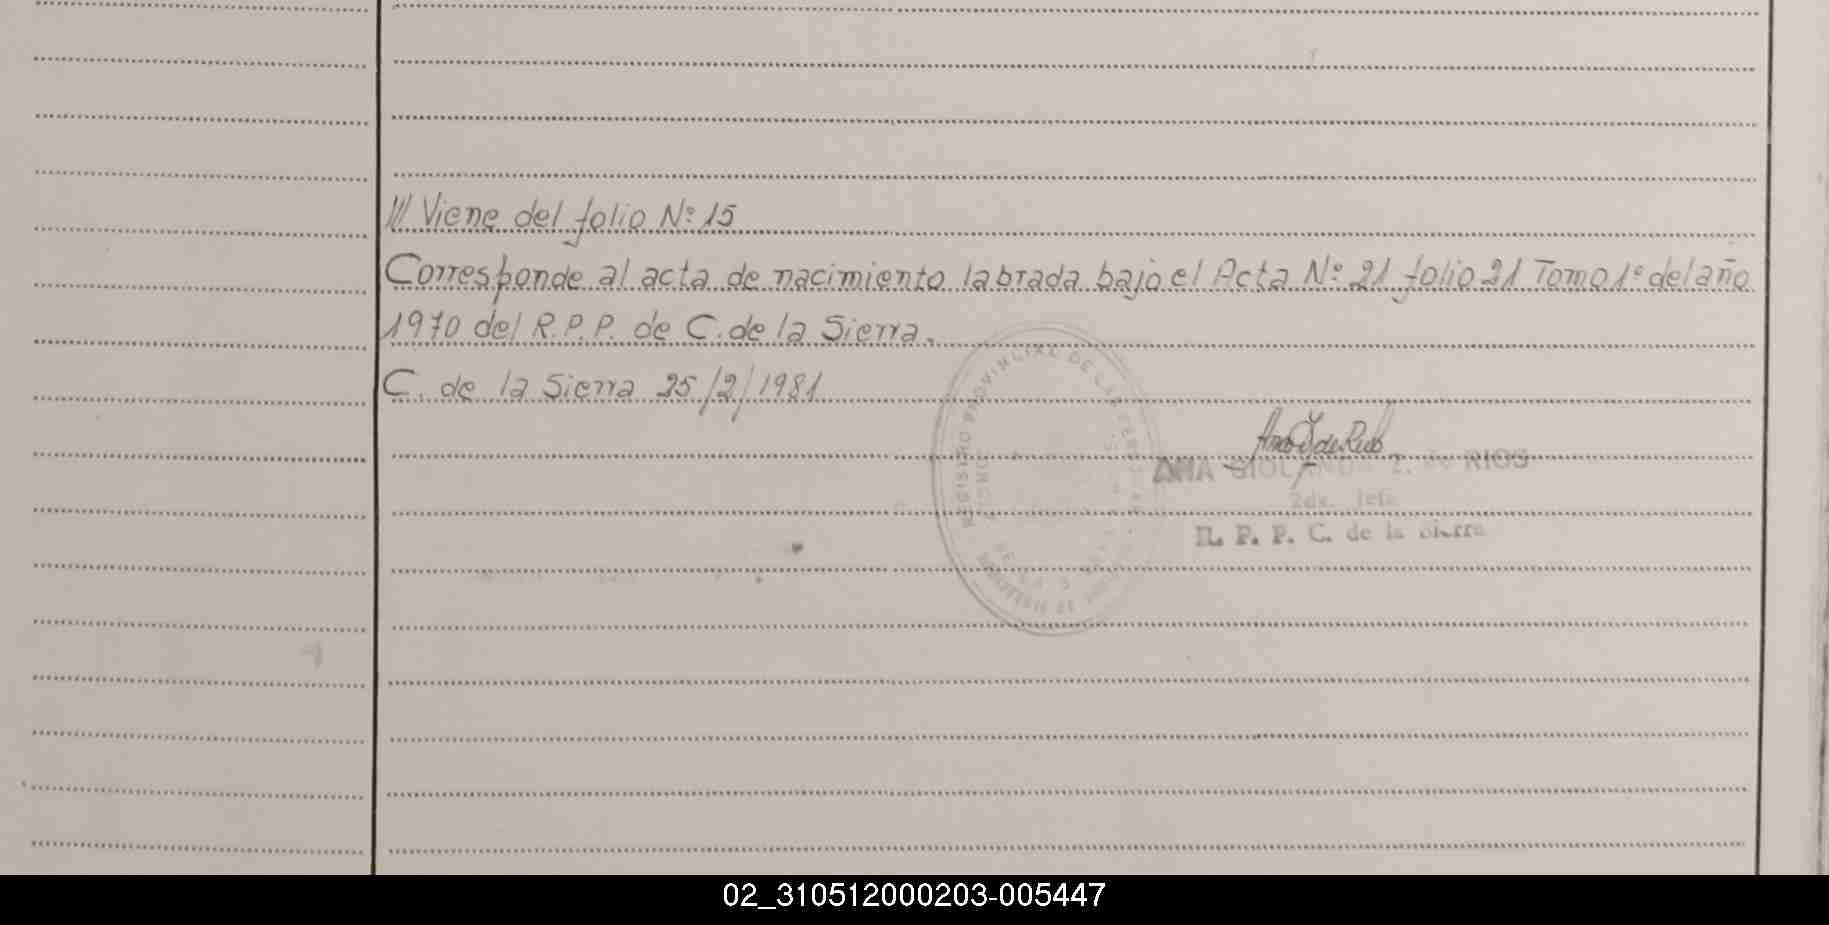 /// Viene del folio Nº 15
Corresponde al acta de nacimiento labrada bajo el Acta Nº 21 folio 21 Tomo 1º del año
1970 del R.P.P. de C. de la Sierra.
C. de la Sierra 25/2/1981
REGISTRO PROVINCIAL DE LAS PERSONAS
ANA de RIOS
2da. Jefe
R. P. P. C. de la Sierra
02_310512000203-005447